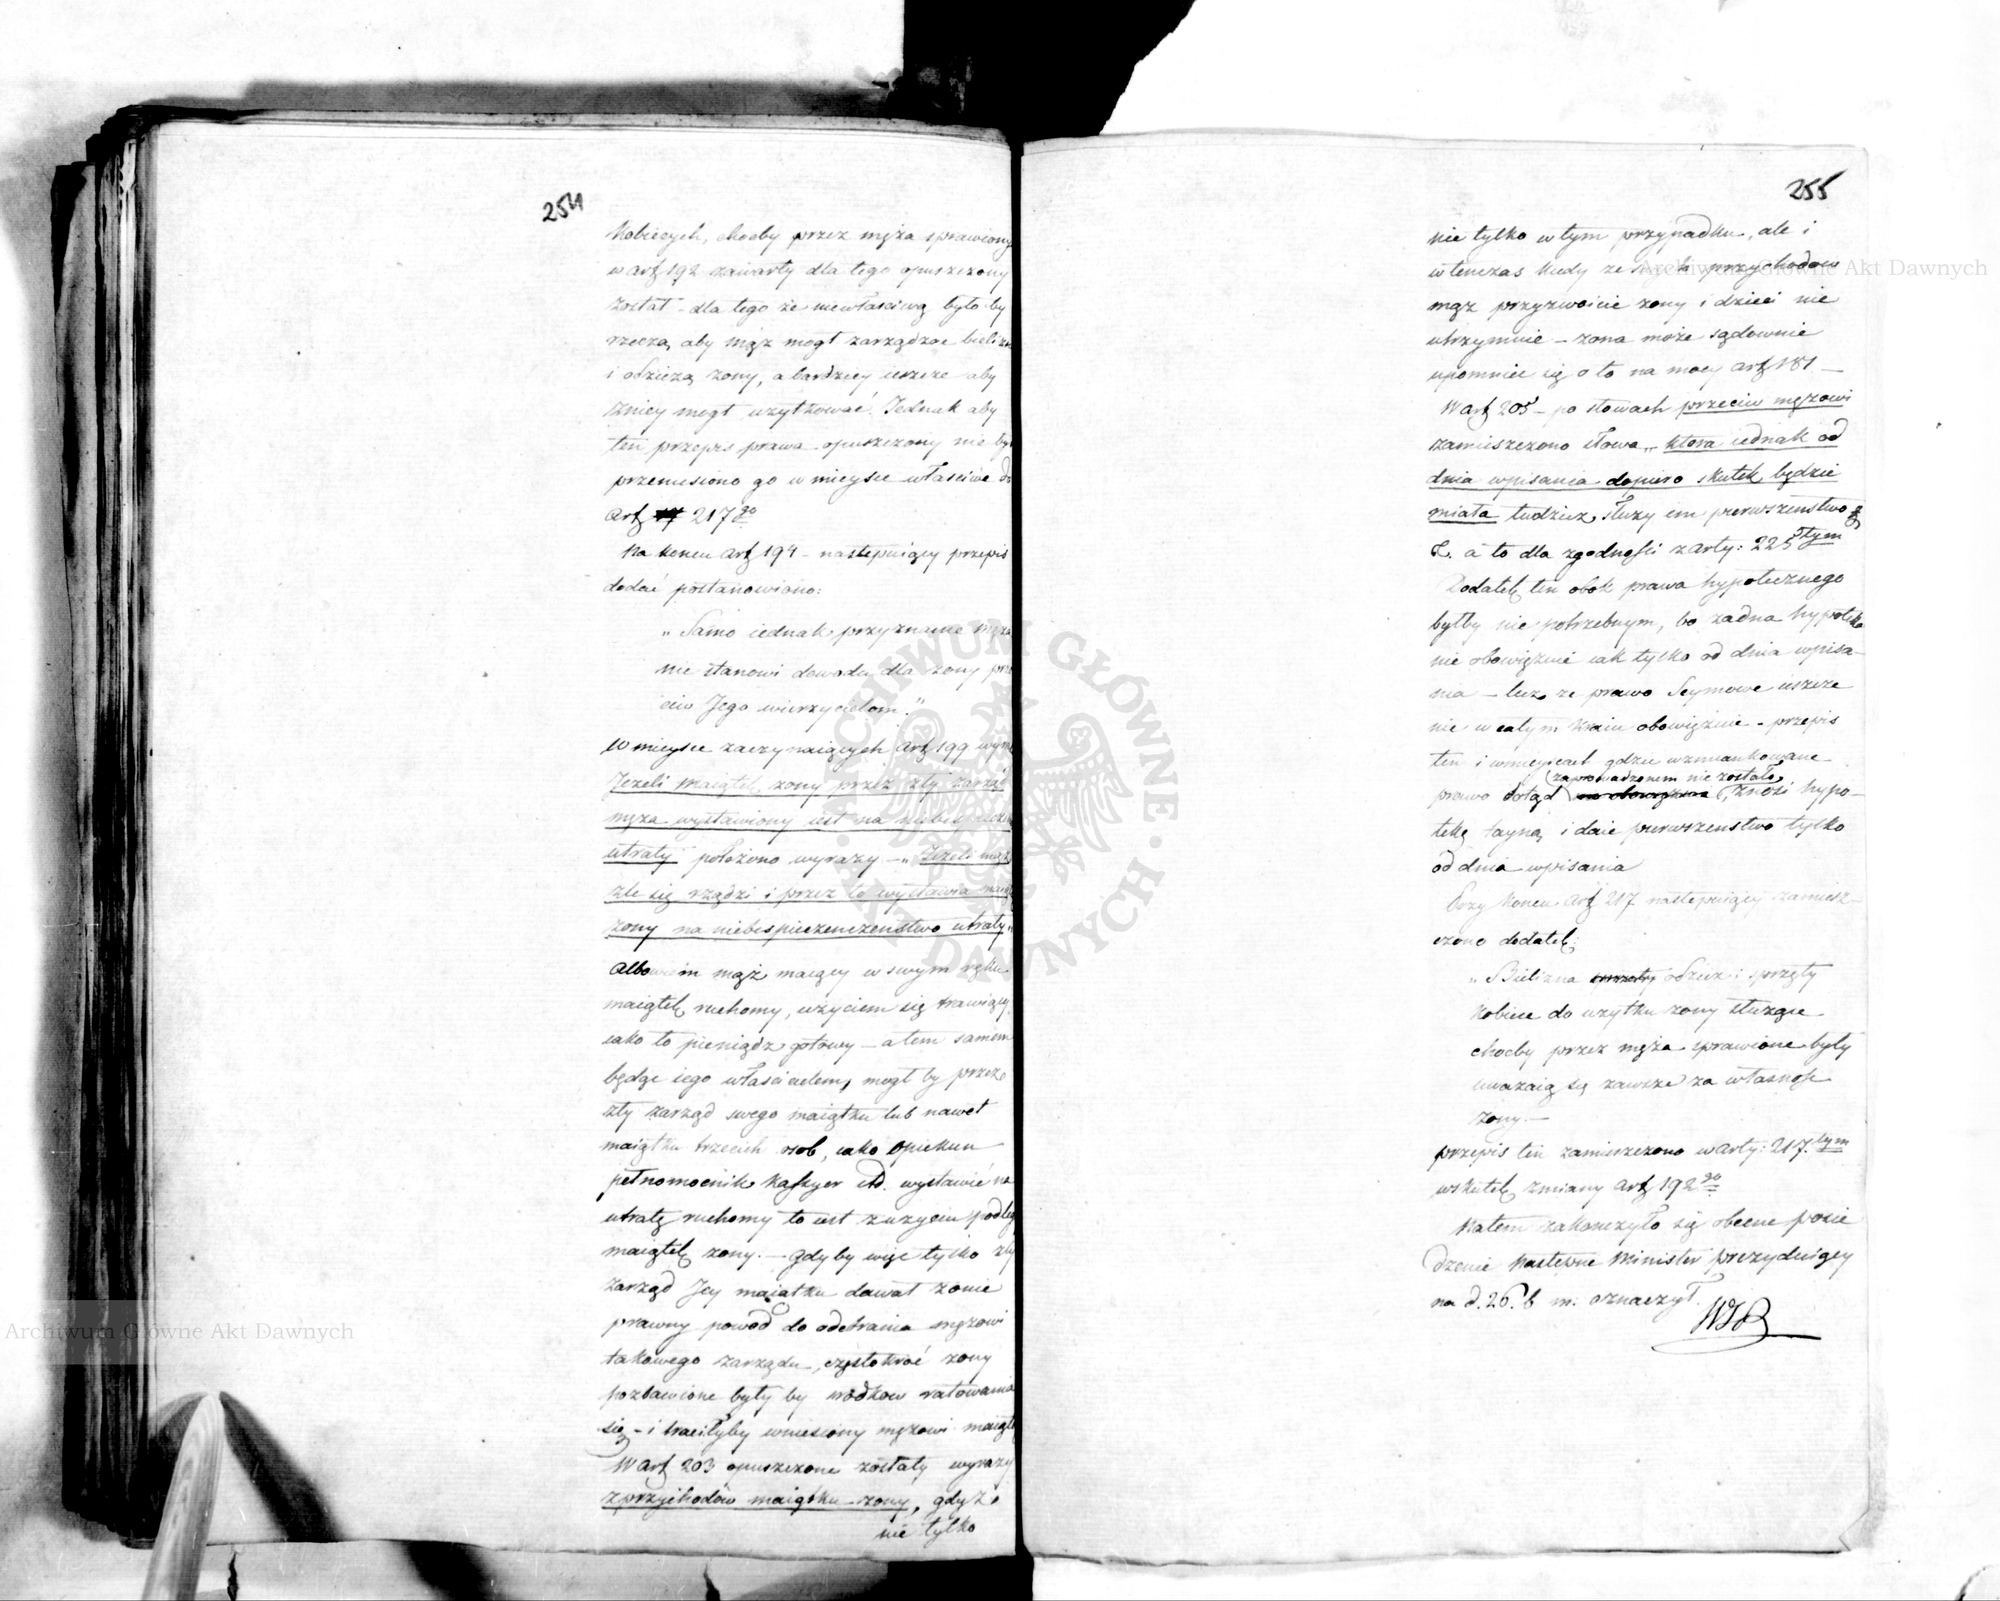 254
Kobiecych, choćby przez męża sprawiony
w art 192 zawarty dla tego opuszczony
został - dla tego że niewłaściwą było by
rzeczą, aby mąż mogł zarządzać
i odzieżą żony, a bardziey ieszcze aby
zniey mogł użytkować. Jednak aby
ten przepis prawa opuszczony nie
przeniesiono go w mieysce właściwe do
art 217go
Na końcu art 194 - następuiący przepis
dodać postanowiono:
„Samo iednak przyznanie męża
nie stanowi dowodu dla żony prze
ciw Jego wierzycielom."
W mieysce zaczynaiących art 199
Jeżeli maiątek żony przez zły zarząd
męża wystawiony iest na
utraty położono wyrazy - „Jeżeli mąż
źle się rządzi i przez to wystawia
żony na niebespieczeństwo utraty"
Albowiem mąż maiący w swym ręku
maiątek ruchomy, użyciem się trawiący
iako to pieniądz gotowy - a tem samem
będąc iego właścicielem, mogł by przez
zły zarząd swego maiątku lub nawet
maiątku trzecich osob, iako opiekun
pełnomocnik Kassyer itd. wystawić na
utratę ruchomy to iest zużyciu
maiątek żony. - gdyby więc tylko zły
zarząd Jey maiątku dawał żonie
prawny powod do odebrania mężowi
takowego zarządu, częstokroć żony
pozbawione były by srodkow ratowania
się - i traciłyby wniesiony mężowi
W art 203 opuszczone zostały wyrazy
z przychodów maiątku żony, gdyż
nie tylko
255
nie tylko w tym przypadku, ale i
wtenczas kiedy ze przychodow
mąż przyzwoicie żony i dzieci nie
utrzymuie - żona może sądownie
upomnieć się o to na mocy art 181 -
W art 205 - po słowach przeciw mężowi
zamieszczono słowa „która iednak od
dnia wpisania dopiero skutek będzie
miała tudzież służy em pierwszeństwo
a to dla zgodności z arty: 225tym
Dodatek ten obok prawa hypotecznego
byłby nie potrzebnym, bo żadna hypoteka
nie obowiązuie iak tylko od dnia wpisa-
nia - lecz że prawo Seymowe ieszcze
nie w całym kraiu obowiązuie - przepis
ten i w mieyscach gdzie wzmiankowane
zaprowadzonem nie zostało
prawo dotąd , znosi hypo-
tekę tayną i daie pierwszeństwo tylko
od dnia wpisania
Przy końcu art 217 następuiący zamiesz-
czono dodatek:
„Bielizna odzież i sprzęty
kobiece do użytku żony służące
choćby przez męża sprawione były
uważaią się zawsze za własność
żony. -
przepis ten zamieszczono w arty: 217.tym
wskutek zmiany art 192go
Na tem zakończyło się obecne posie
dzenie Następne Minister prezyduiący
na d. 26. b m: oznaczył.
Archiwum Główne Akt Dawnych
Archiwum Główne Akt Dawnych
ARCHIWUM GŁÓWNE · AKT DAWNYCH ·